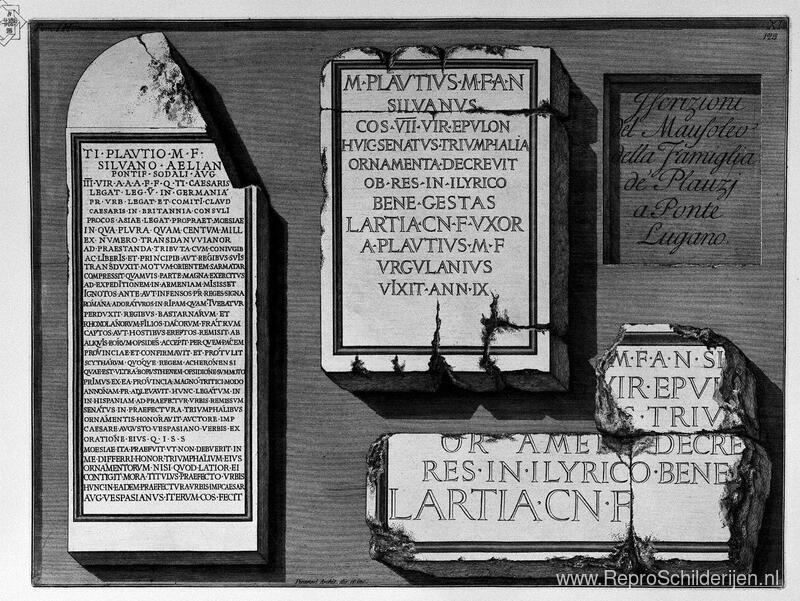 123
TI · PLAVTIO · M · F ·
SILVANO · AELIAN
PONTIF · SODALI · AVG
III · VIR · A · A · A · F · F · Q · TI · CAESARIS
LEGAT · LEG · V · IN · GERMANIA
PR · VRB · LEGAT · ET · COMITI · CLAVD
CAESARIS · IN · BRITANNIA · CONSVLI
PROCOS · ASIAE · LEGAT · PROPRAET · MOESIAE
IN · QVA · PLVRA · QVAM · CENTVM · MILL
EX · NVMERO · TRANSDANVVIANOR
AD · PRAESTANDA · TRIBVTA · CVM · CONIVGIB
AC · LIBERIS · ET · PRINCIPIB · AVT · REGIBVS · SVIS
TRANSDVXIT · MOTVM · ORIENTEM · SARMATAR
COMPRESSIT · QVAMVIS · PARTE · MAGNA · EXERCITVS
AD · EXPEDITIONEM · IN · ARMENIAM · MISISSET
IGNOTOS · ANTE · AVT · INFENSOS · P·R · REGES · SIGNA
ROMANA · ADORATVROS · IN · RIPAM · QVAM · TVEBATVR
PERDVXIT · REGIBVS · BASTARNARVM · ET
RHOXOLANORVM · FILIOS · DACORVM · FRATRVM
CAPTOS · AVT · HOSTIBVS · EREPTOS · REMISIT · AB
ALIQVIS · EORVM · OPSIDES · ACCEPIT · PER · QVEM · PACEM
PROVINCIAE · ET · CONFIRMAVIT · ET · PROTVLIT
SCYTHARVM · QVOQVE · REGEM · ACHERONENSI
QVAE · EST · VLTRA · BORVSTHENEM · OPSIDIONE · SVMMOTO
PRIMVS · EX · EA · PROVINCIA · MAGNO · TRITICI · MODO
ANNONAM · P · R · ADLEVAVIT · HVNC · LEGATVM · IN
IN · HISPANIAM · AD · PRAEFECTVR · VRBIS · REMISSVM
SENATVS · IN · PRAEFECTVRA · TRIVMPHALIBVS
ORNAMENTIS · HONORAVIT · AVCTORE · IMP
CAESARE · AVGVSTO · VESPASIANO · VERBIS · EX
ORATIONE · EIVS · Q · I · S · S
MOESIAE · ITA · PRAEFVIT · VT · NON · DEBVERIT · IN
ME · DIFFERRI · HONOR · TRIVMPHALIVM · EIVS
ORNAMENTORVM · NISI · QVOD · LATIOR · EI
CONTIGIT · MORA · TITVLVS · PRAEFECTO · VRBIS
HVNC · IN · EADEM · PRAEFECTVRA · VRBIS · IMP · CAESAR
AVG · VESPASIANVS · ITERVM · COS · FECIT
M · PLAVTIVS · M · F · A · N
SILVANVS
COS · VII · VIR · EPVLON
HVIC · SENATVS · TRIVMPHALIA
ORNAMENTA · DECREVIT
OB · RES · IN · ILYRICO
BENE · GESTAS
LARTIA · CN · F · VXOR
A · PLAVTIVS · M · F
VRGVLANIVS
VIXIT · ANN · IX
Iscrizioni
del Mausoleo
della Famiglia
de' Plauzj
a Ponte
Lugano.
M · F · A · N · SI
VIR · EPV
S · TRIV
OR AMEN DECRE
RES · IN · ILYRICO · BENE
LARTIA · CN · F
Piranesi Archit. dis. et inc.
www.ReproSchilderijen.nl